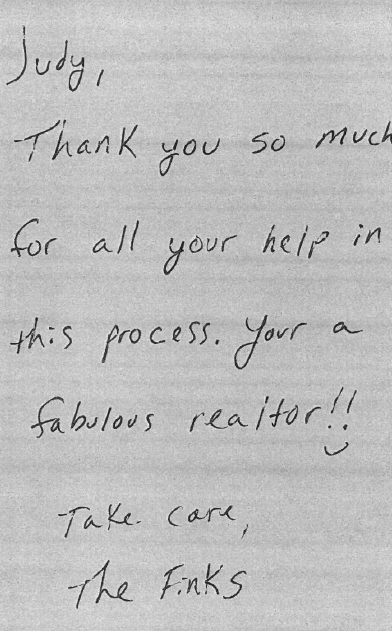 Judy,
Thank you so much
for all your help in
this process. Your a
fabulous realtor!!
Take care,
The Finks